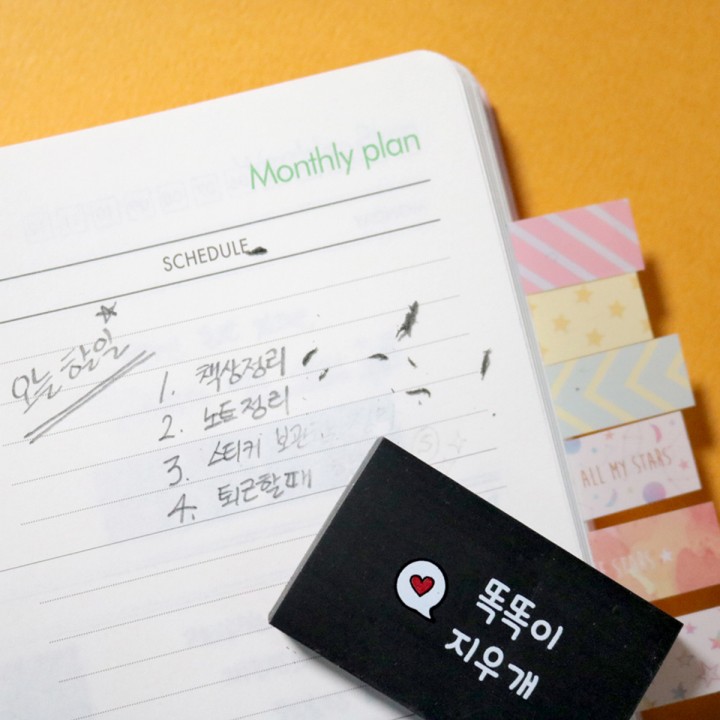 Monthly plan
SCHEDULE
오늘 할일
1. 책상정리
2. 노트정리
3. 스티커 보관
4. 퇴근할때
ALL MY STARS
똑똑이
지우개